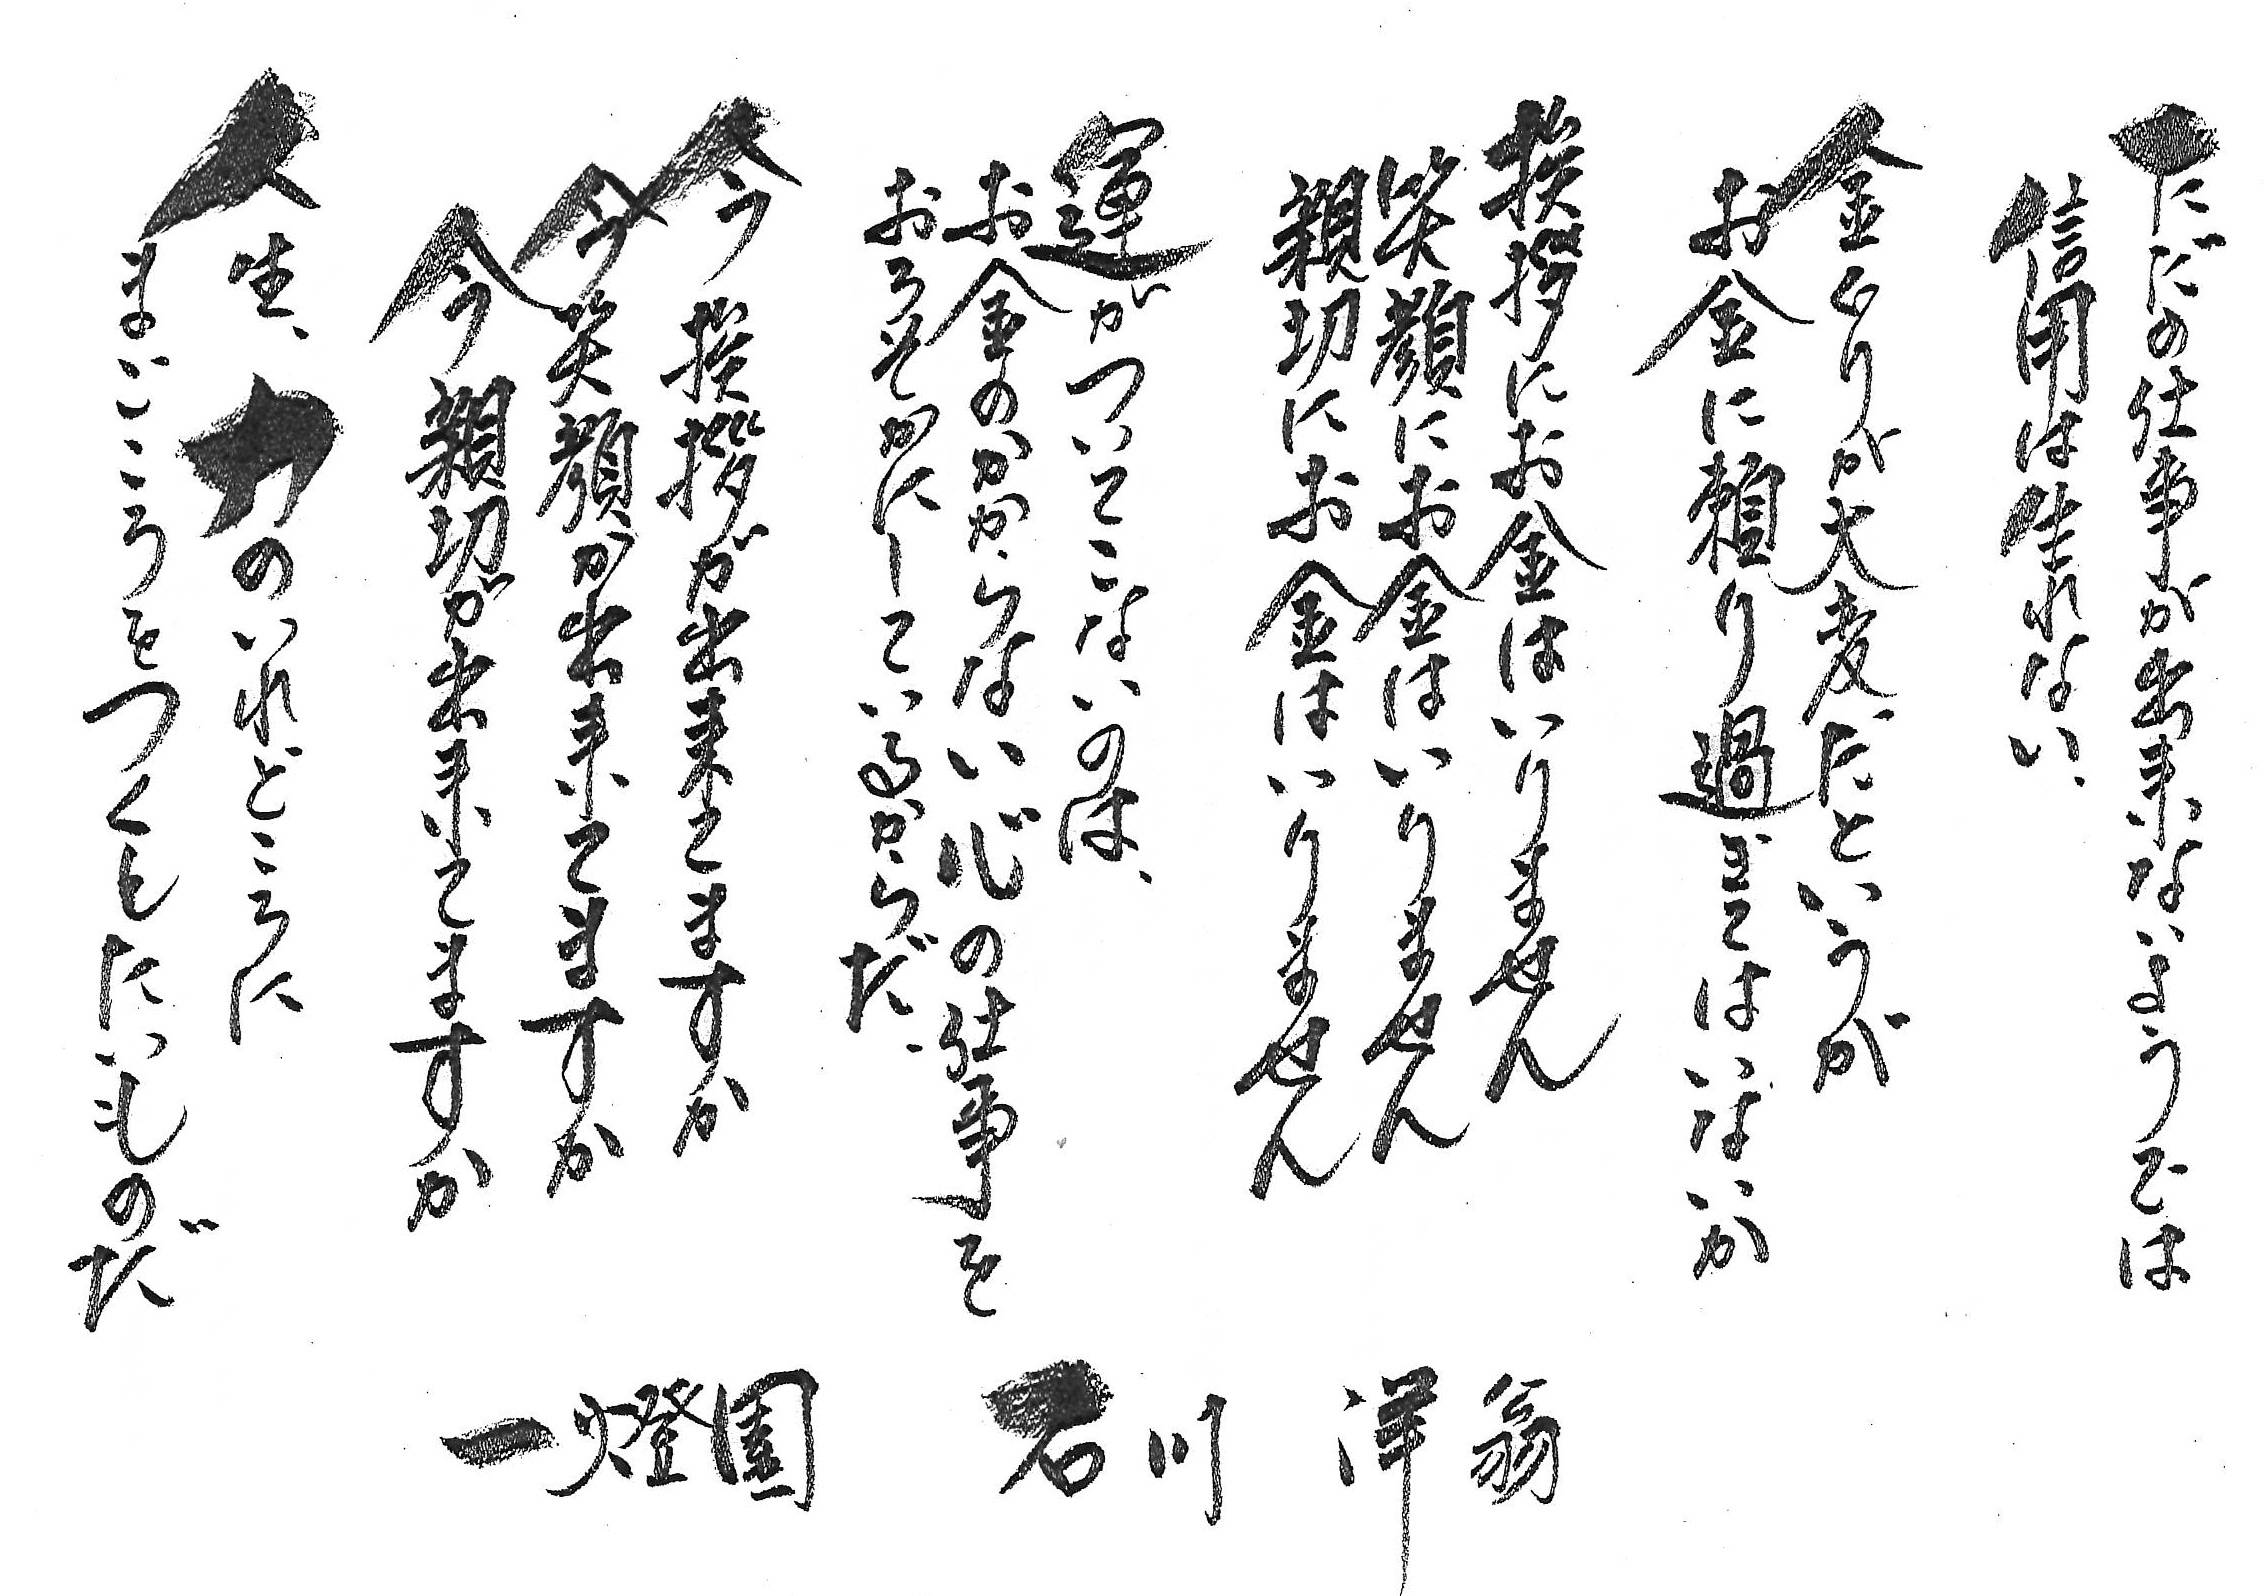 ただの仕事が出来ないようでは
信用は生れない、
金ぐりが大変だというが
お金に頼り過ぎてはいないか
挨拶にお金はいりません
笑顔にお金はいりません
親切にお金はいりません
運がついてこないのは、
お金のかからない心の仕事を
おろそかにしているからだ、
今挨拶が出来てますか
今笑顔が出来てますか
今親切が出来てますか
人生、力のいれどころに
まごころをつくしたいものだ
一燈園　石川　洋　翁